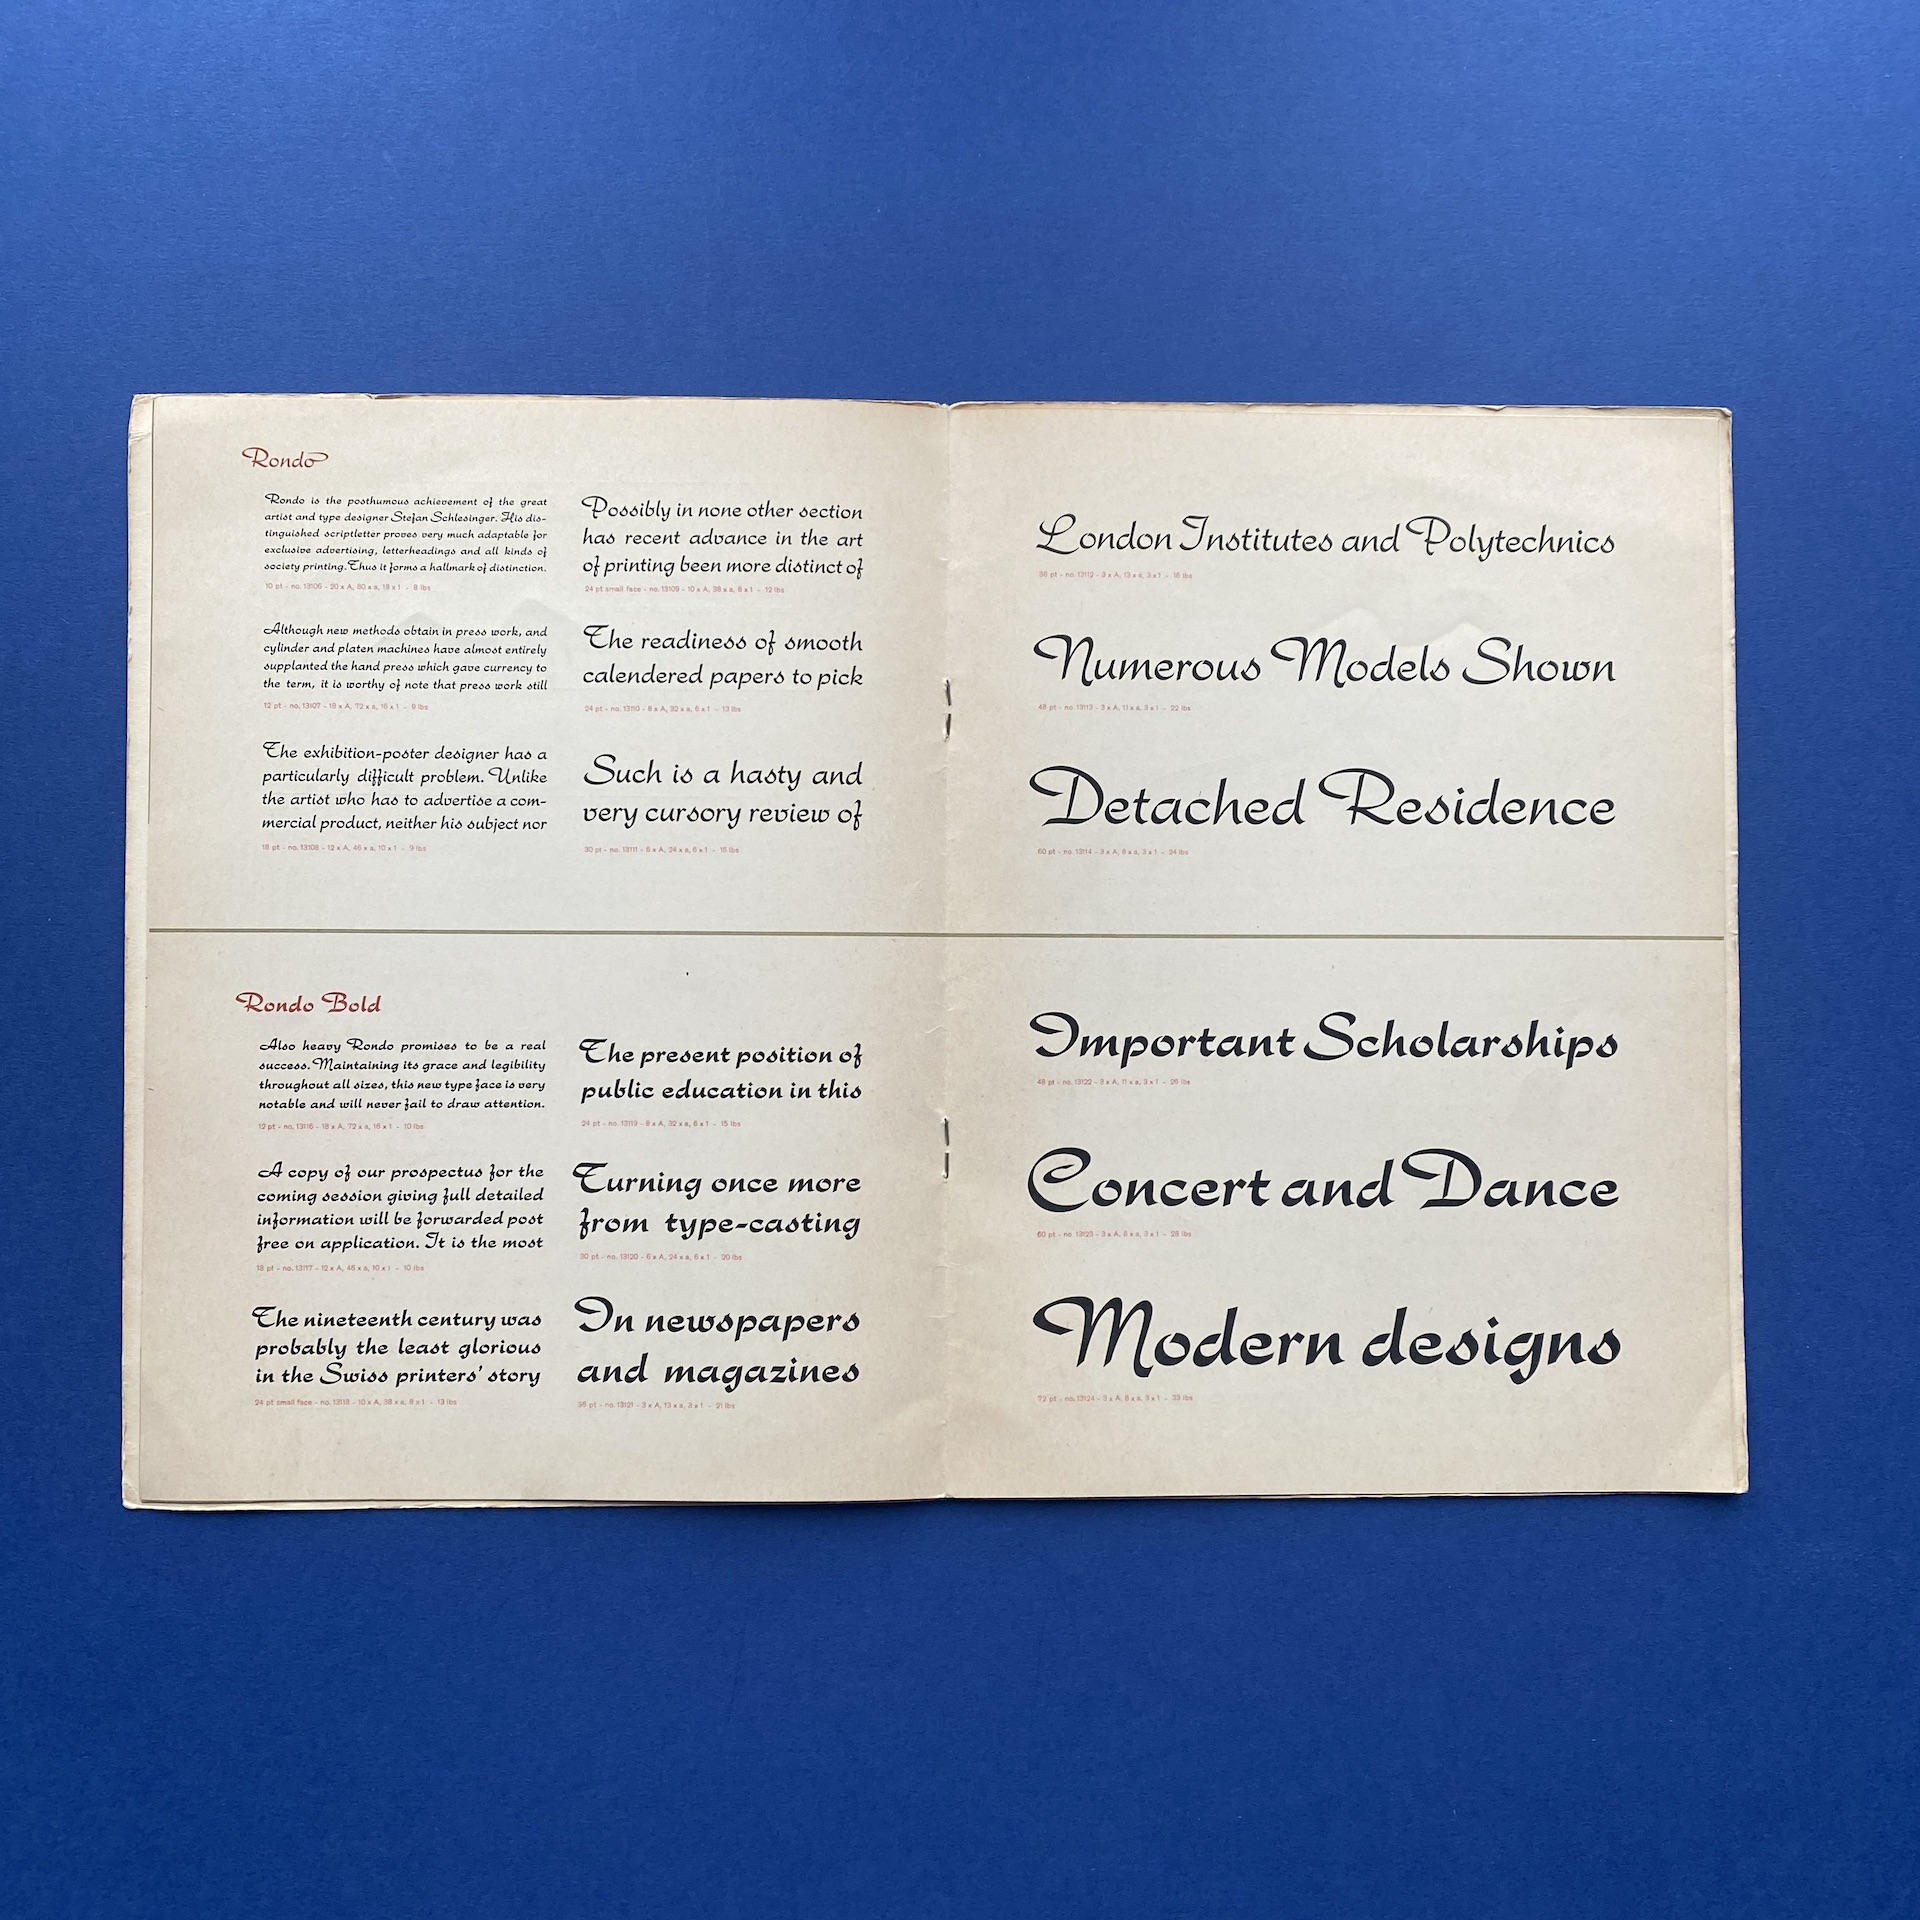 Rondo
Rondo is the posthumous achievement of the great
artist and type designer Stefan Schlesinger. His dis-
tinguished scriptletter proves very much adaptable for
exclusive advertising, letterheadings and all kinds of
society printing. Thus it forms a hallmark of distinction.
10 pt - no. 13106 - 20 x A, 80 x a, 18 x 1 - 8 lbs
Although new methods obtain in press work, and
cylinder and platen machines have almost entirely
supplanted the hand press which gave currency to
the term, it is worthy of note that press work still
12 pt - no. 13107 - 18 x A, 72 x a, 16 x 1 - 9 lbs
The exhibition-poster designer has a
particularly difficult problem. Unlike
the artist who has to advertise a com-
mercial product, neither his subject nor
18 pt - no. 13108 - 12 x A, 46 x a, 10 x 1 - 9 lbs
Possibly in none other section
has recent advance in the art
of printing been more distinct of
24 pt small face - no. 13109 - 10 x A, 38 x a, 8 x 1 - 12 lbs
The readiness of smooth
calendered papers to pick
24 pt - no. 13110 - 8 x A, 32 x a, 6 x 1 - 13 lbs
Such is a hasty and
very cursory review of
30 pt - no. 13111 - 6 x A, 24 x a, 6 x 1 - 16 lbs
London Institutes and Polytechnics
36 pt - no. 13112 - 3 x A, 13 x a, 3 x 1 - 16 lbs
Numerous Models Shown
48 pt - no. 13113 - 3 x A, 11 x a, 3 x 1 - 22 lbs
Detached Residence
60 pt - no. 13114 - 3 x A, 8 x a, 3 x 1 - 24 lbs
Rondo Bold
Also heavy Rondo promises to be a real
success. Maintaining its grace and legibility
throughout all sizes, this new type face is very
notable and will never fail to draw attention.
12 pt - no. 13116 - 18 x A, 72 x a, 16 x 1 - 10 lbs
A copy of our prospectus for the
coming session giving full detailed
information will be forwarded post
free on application. It is the most
18 pt - no. 13117 - 12 x A, 46 x a, 10 x 1 - 10 lbs
The nineteenth century was
probably the least glorious
in the Swiss printers' story
24 pt small face - no. 13118 - 10 x A, 38 x a, 8 x 1 - 13 lbs
The present position of
public education in this
24 pt - no. 13119 - 8 x A, 32 x a, 6 x 1 - 15 lbs
Turning once more
from type-casting
30 pt - no. 13120 - 6 x A, 24 x a, 6 x 1 - 20 lbs
In newspapers
and magazines
36 pt - no. 13121 - 3 x A, 13 x a, 3 x 1 - 21 lbs
Important Scholarships
48 pt - no. 13122 - 3 x A, 11 x a, 3 x 1 - 26 lbs
Concert and Dance
60 pt - no. 13123 - 3 x A, 8 x a, 3 x 1 - 28 lbs
Modern designs
72 pt - no. 13124 - 3 x A, 8 x a, 3 x 1 - 33 lbs